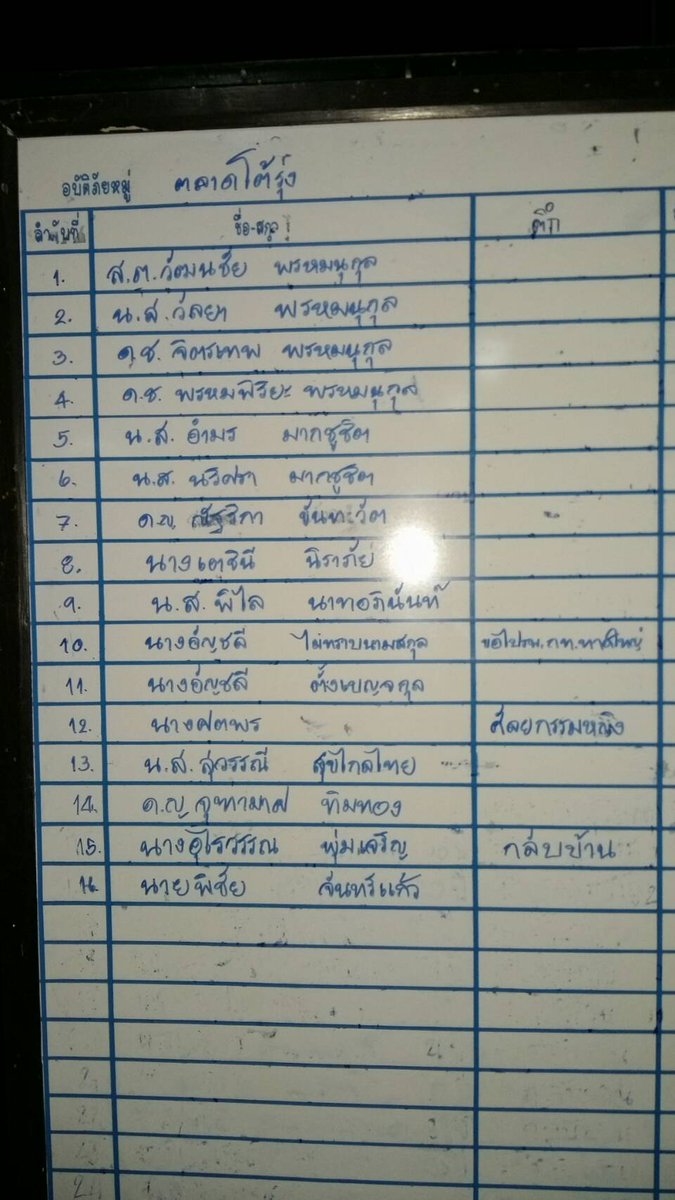 อุบัติภัยหมู่ ตลาดโต้รุ่ง
ลำดับที่ ชื่อ-สกุล ตึก
1. ส.ต.วัฒนชัย พรหมนุกุล
2. น.ส.วัลยา พรหมนุกุล
3. ด.ช. จิตรเทพ พรหมนุกุล
4. ด.ช. พรหมพิริยะ พรหมนุกุล
5. น.ส. อำมร มากชูชิต
6. น.ส. นริศรา มากชูชิต
7. ด.ญ. ณัฐริกา ขันทะวัต
8. นางเตชินี นิราภัย
9. น.ส. พิไล นาทอภินันท์
10. นางอัญชลี ไม่ทราบนามสกุล ขอไปรพ.กท.หาดใหญ่
11. นางอัญชลี ตั้งเบญจกุล
12. นางศตพร ศัลยกรรมหญิง
13. น.ส. สุวรรณี สุขไกลไทย
14. ด.ญ จุฑามาศ ทิมทอง
15. นางอุไรวรรณ พุ่มเจริญ กลับบ้าน
16. นายพิชัย จันทร์แก้ว